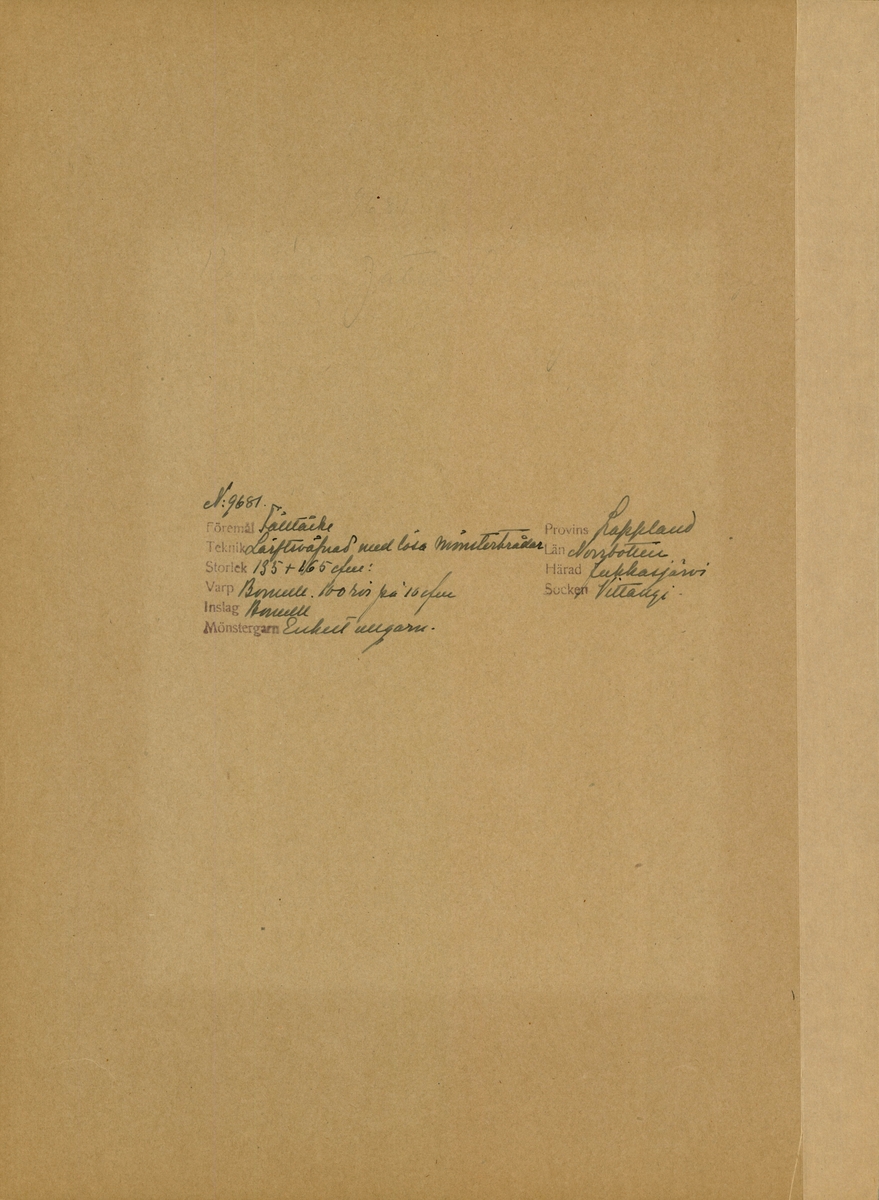 N:9681.
Föremål Fälltäcke
Teknik Lärftsväfnad med lösa Mönstertrådar
Storlek 135 + 165 cfm:
Varp Bomull. 100 rör på 10 cfm
Inslag Bomull
Mönstergarn Enkelt ullgarn.
Provins Lappland
Län Norrbotten
Härad Jukkasjärvi
Socken Vittangi.